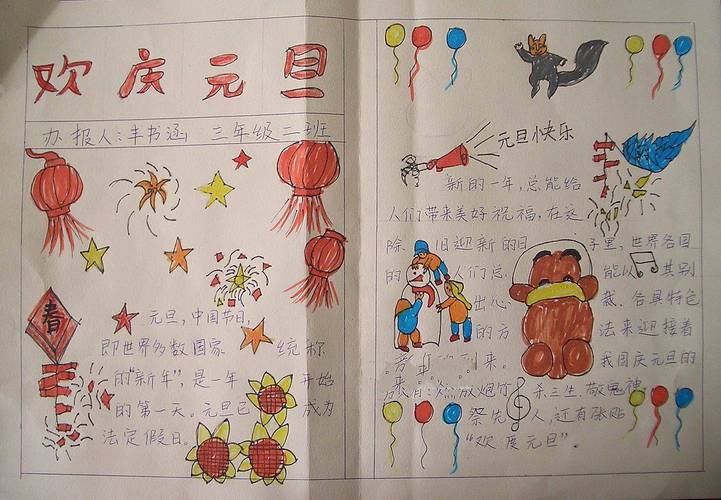 欢庆元旦
办报人:丰书涵 三年级二班
春
元旦,中国节日,
即世界多数国家 统称
的"新年",是一年 开始
的第一天。元旦已 成为
法定假日。
元旦快乐
新的一年,总能给
人们带来美好祝福,在这
除 旧迎新的日 子里,世界各国
的 人们总 能以 其别
出心 裁、各具特色
的方 法来迎接着
来。 我国庆元旦的
有:燃放炮竹 杀三生、敬鬼神
祭先 人,还有张贴
"欢度元旦"。